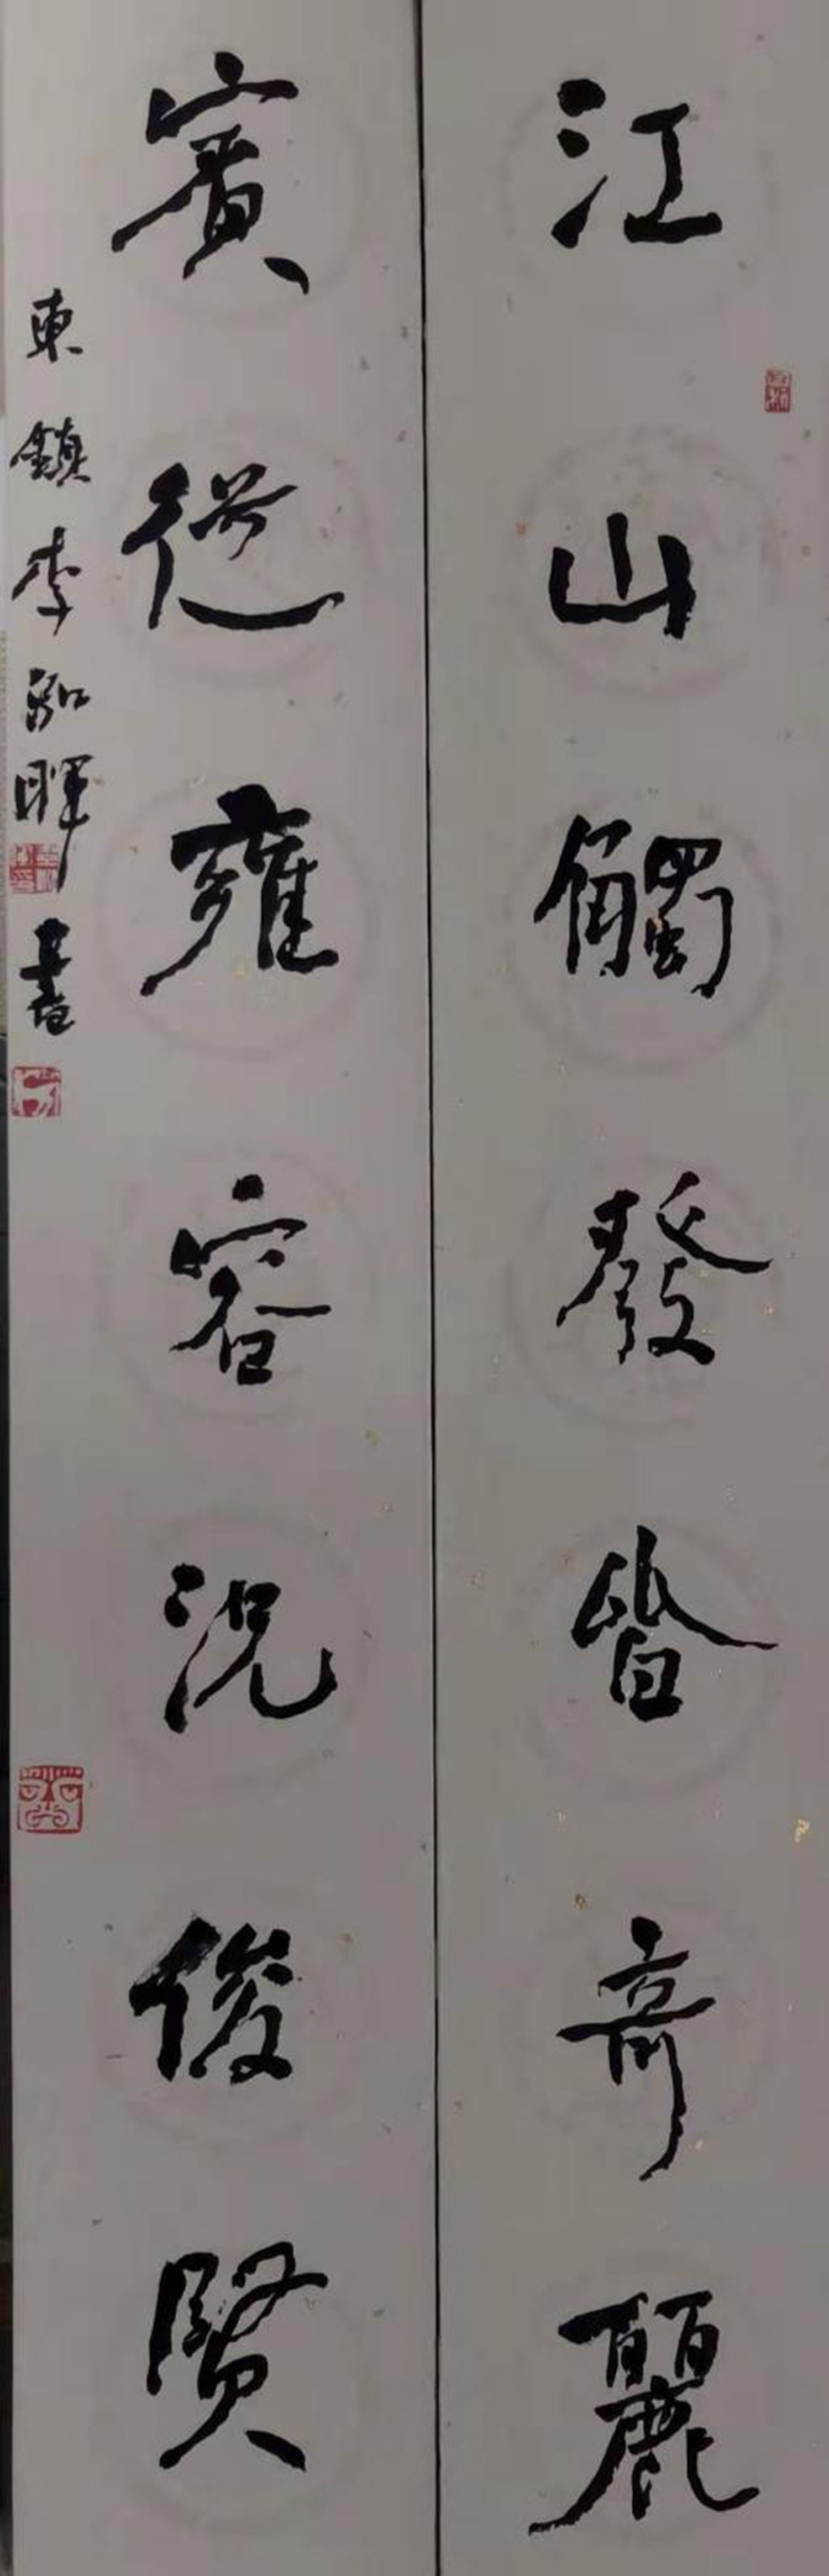 江山觸發皆奇麗
賓從雍容況俊賢
東鎮李弘暉書